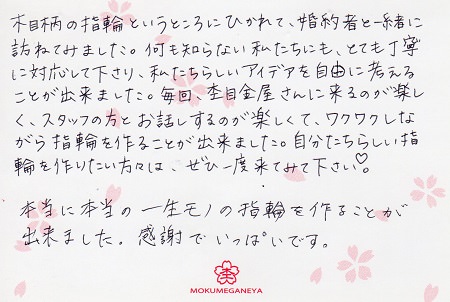 木目柄の指輪というところにひかれて、婚約者と一緒に
訪ねてみました。何も知らない私たちにも、とても丁寧
に対応して下さり、私たちらしいアイデアを自由に考える
ことが出来ました。毎回、杢目金屋さんに来るのが楽し
く、スタッフの方とお話しするのが楽しくて、ワクワクしな
がら指輪を作ることが出来ました。自分たちらしい指
輪を作りたい方々は、ぜひ一度来てみて下さい♡
本当に本当の一生モノの指輪を作ることが
出来ました。感謝でいっぱいです。
MOKUMEGANEYA